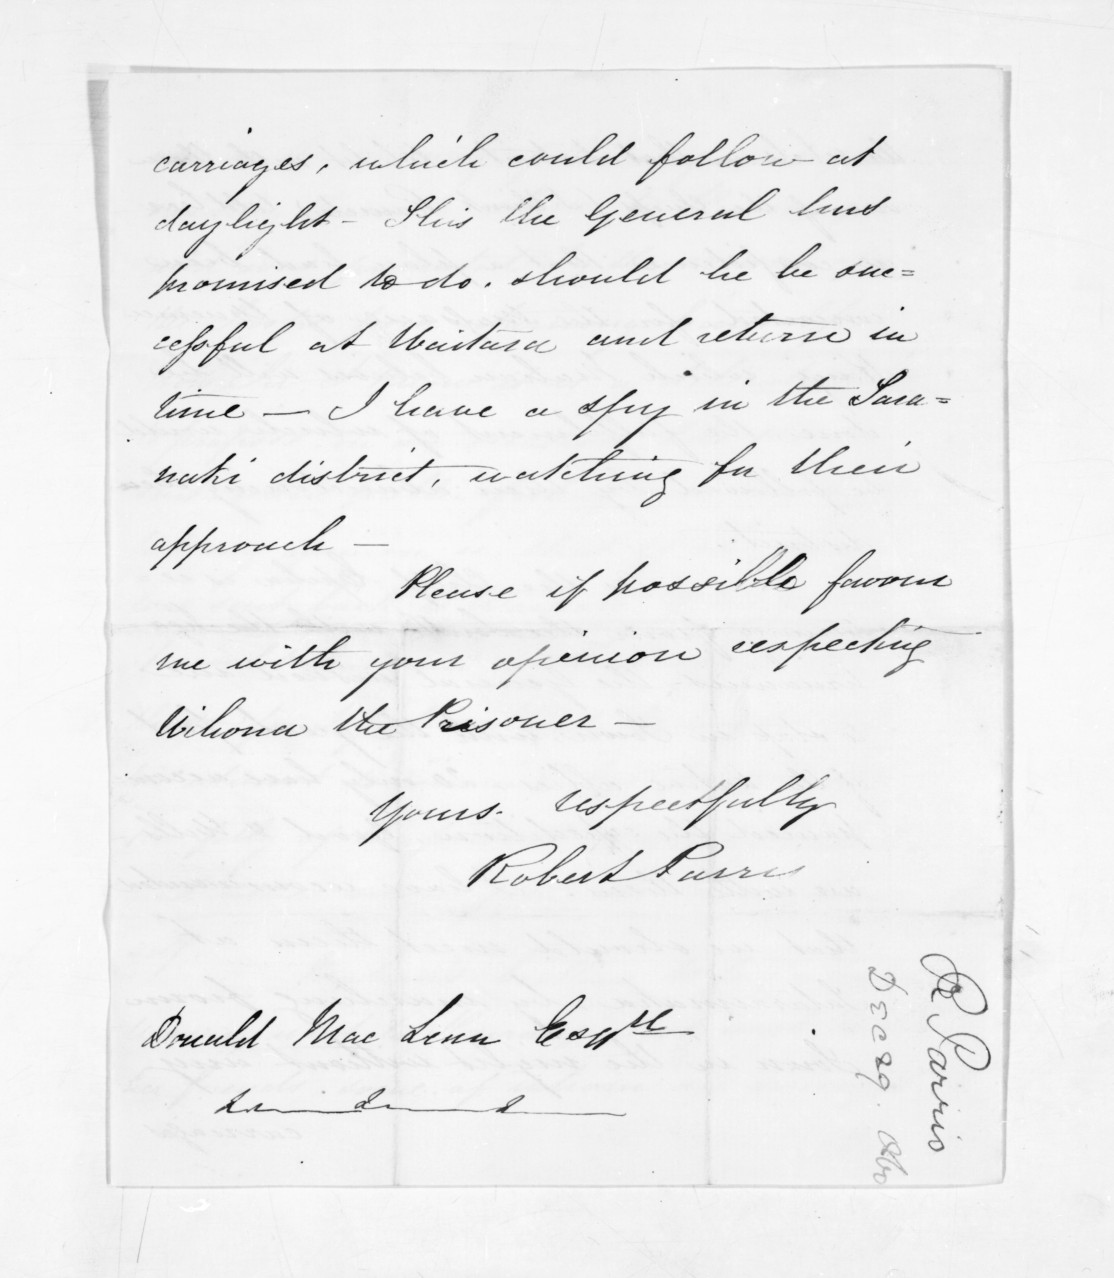 carriages, which could follow at
daylight - This the General has
promised to do. should he be suc=
cessful at Waitara and return in
time - I have a spy in the Tara=
naki district, watching for their
approach -
Please if possible favour
me with your opinion respecting
Wihona the Prisoner -
Yours respectfully
Robert Parris
Donald Mac Lean Esqre
R Parris
Dec 29. 1860